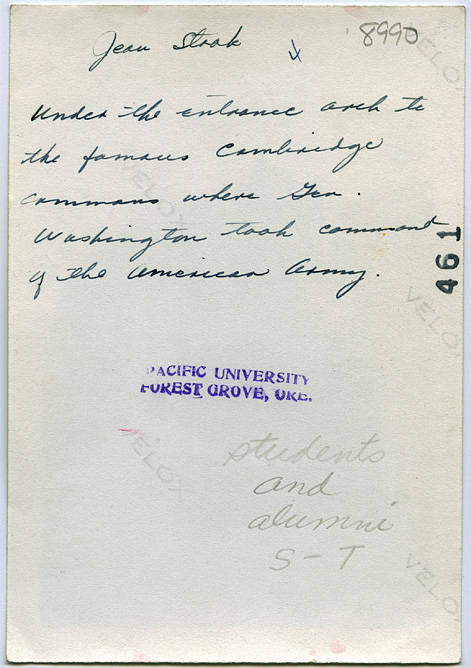 Jean Stook
8990
Under the entrance arch to
the famous Cambridge
Commons where Gen.
Washington took command
of the American Army.
461
PACIFIC UNIVERSITY
FOREST GROVE, ORE.
students
and
alumni
S-T
VELOX
VELOX
VELOX
VELOX
VELOX